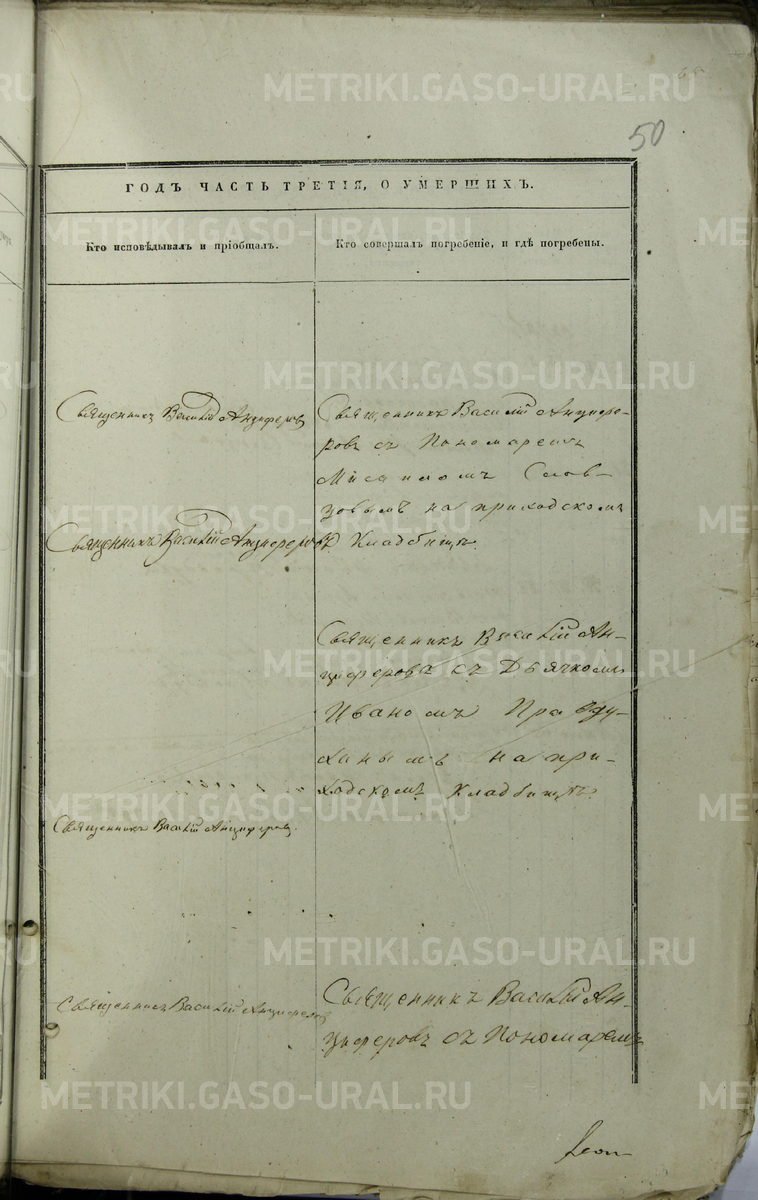 50
ГОДЪ ЧАСТЬ ТРЕТІЯ, О УМЕРШИХЪ.
Кто исповѣдывалъ и пріобщалъ.
Кто совершалъ погребеніе, и гдѣ погребены.
Священникъ Василій Анциферовъ
Священникъ Василій Анцифе-
ровъ съ Пономаремъ
Слов-
цовымъ на приходскомъ
Кладбищѣ.
Священникъ Василій Анциферовъ
Священникъ Василій Ан-
циферовъ съ Дьячкомъ
Иваномъ Правду-
хинымъ на при-
ходскомъ Кладбищѣ.
Священникъ Василій Анциферовъ.
Священникъ Василій Анциферовъ
Священникъ Василій Ан-
циферовъ съ Пономаремъ
METRIKI.GASO-URAL.RU